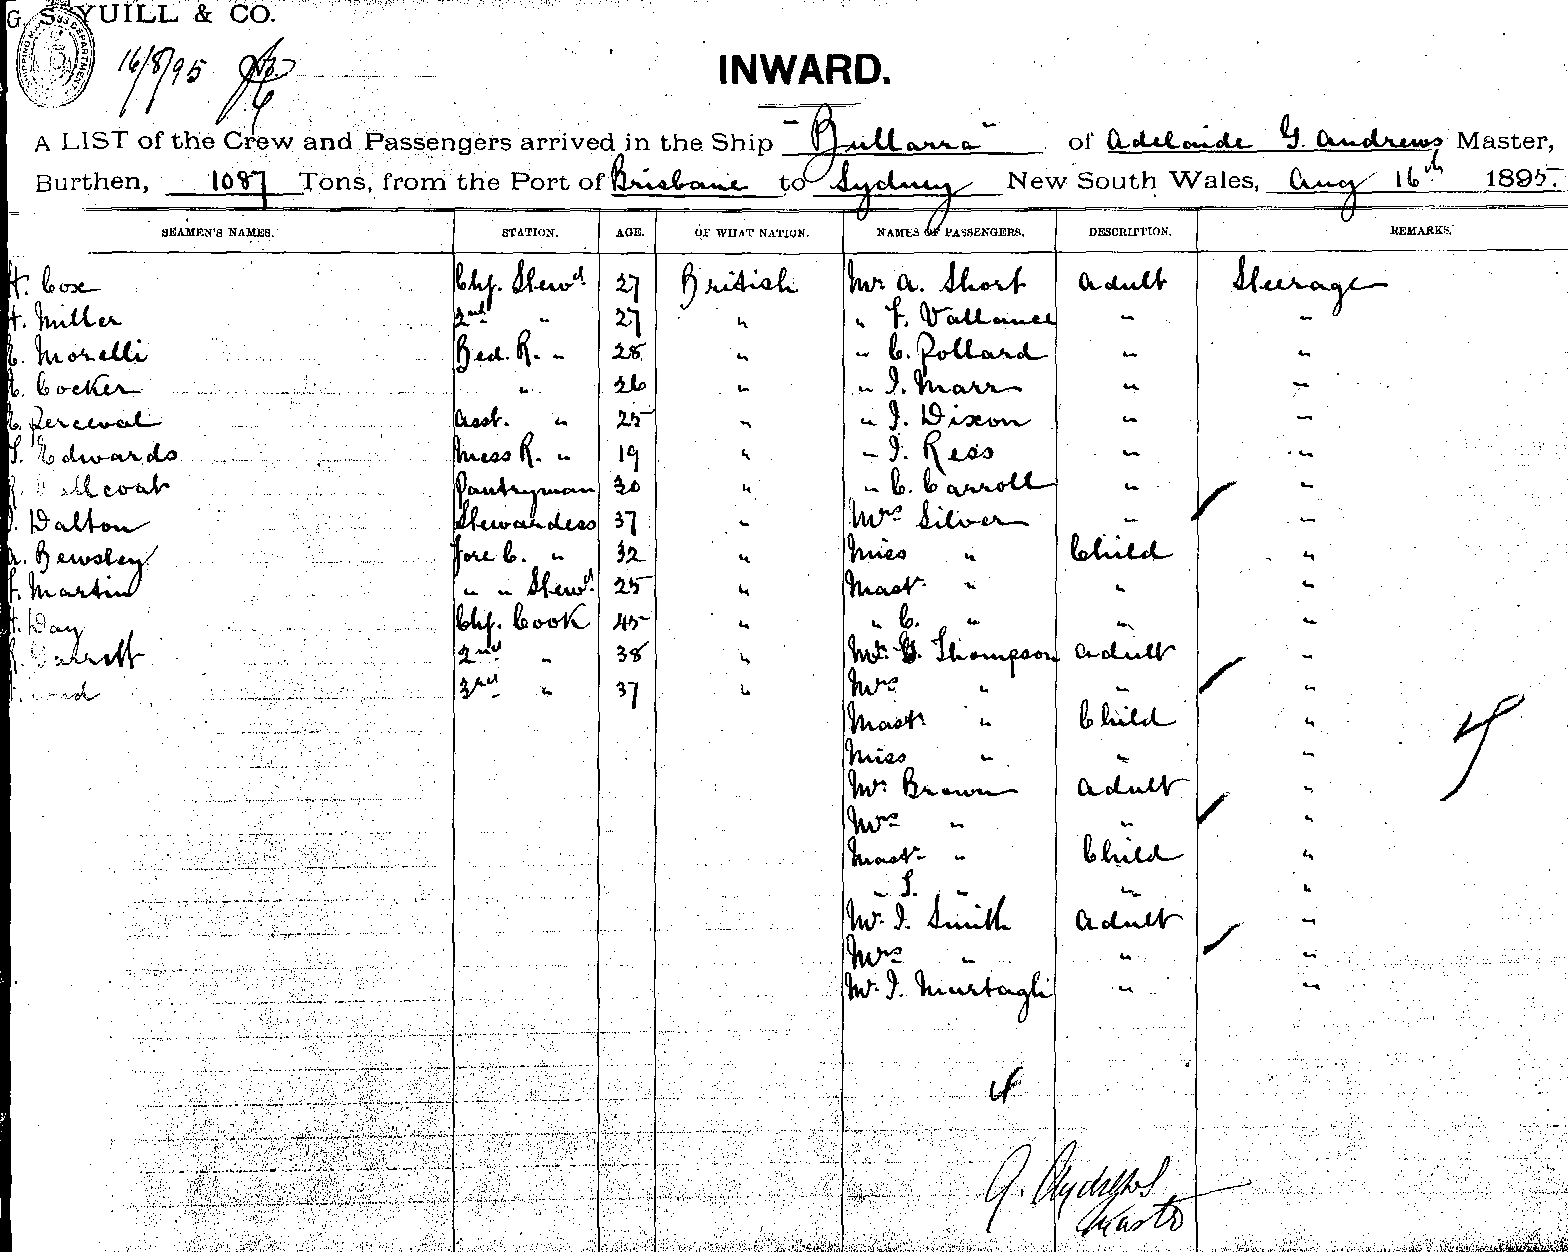 G. S. YUILL & CO.
16/8/95
INWARD.
A LIST of the Crew and Passengers arrived in the Ship "Bullarra" of Adelaide G. Andrews Master,
Burthen, 1087 Tons, from the Port of Brisbane to Sydney New South Wales, Aug 16th 1895.
SEAMEN'S NAMES. STATION. AGE. OF WHAT NATION. NAMES OF PASSENGERS. DESCRIPTION. REMARKS.
Cox Chf. Stewd 27 British Mr A. Short Adult Steerage
Miller 2nd " 27 " " F. Vallance " "
Morelli Bed. R. " 28 " " C. Pollard " "
Cocker " 26 " " J. Marr " "
Perceval Asst. " 25 " " J. Dixon " "
Edwards Mess R. " 19 " " J. Ress " "
Pantryman 30 " " C. Carroll " "
Dalton Stewardess 37 " Mrs Silver " "
Bewsley Fore C. " 32 " Miss " Child "
Martin " " Stewd 25 " Mast " " "
Day Chf. Cook 45 " " C. " " "
Garrett 2nd " 38 " Mr. G. Thompson Adult "
3rd " 37 " Mrs " " "
Mast " Child "
Miss " " "
Mr Brown Adult "
Mrs " " "
Mast " Child "
" S. " " "
Mr. J. Smith Adult "
Mrs " " "
Mr. J. Murtagh " "
G. Andrews
Master